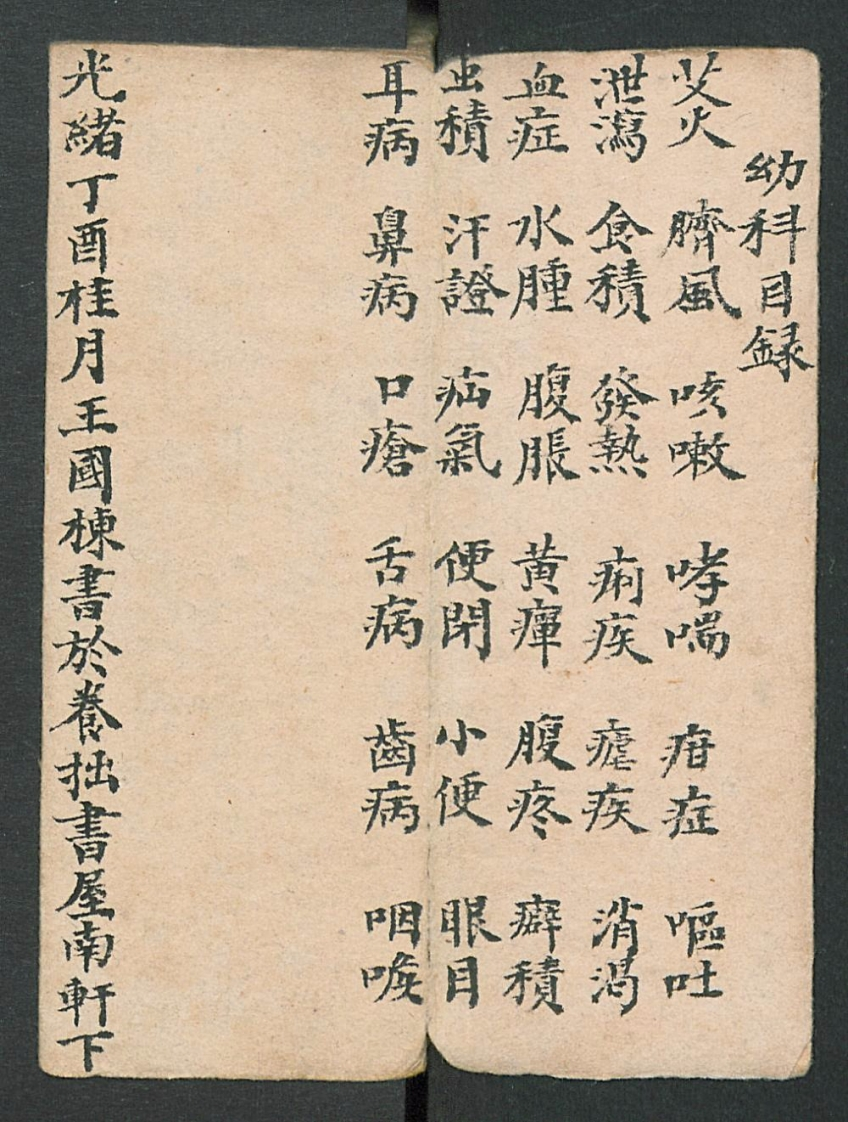 幼科目録
艾火 臍風 咳嗽 哮喘 疳症 嘔吐
泄瀉 食積 發熱 痢疾 瘧疾 消渴
血症 水腫 腹脹 黄癉 腹疼 癖積
虫積 汗證 疝氣 便閉 小便 眼目
耳病 鼻病 口瘡 舌病 齒病 咽喉
光緒丁酉桂月王國棟書於養拙書屋南軒下